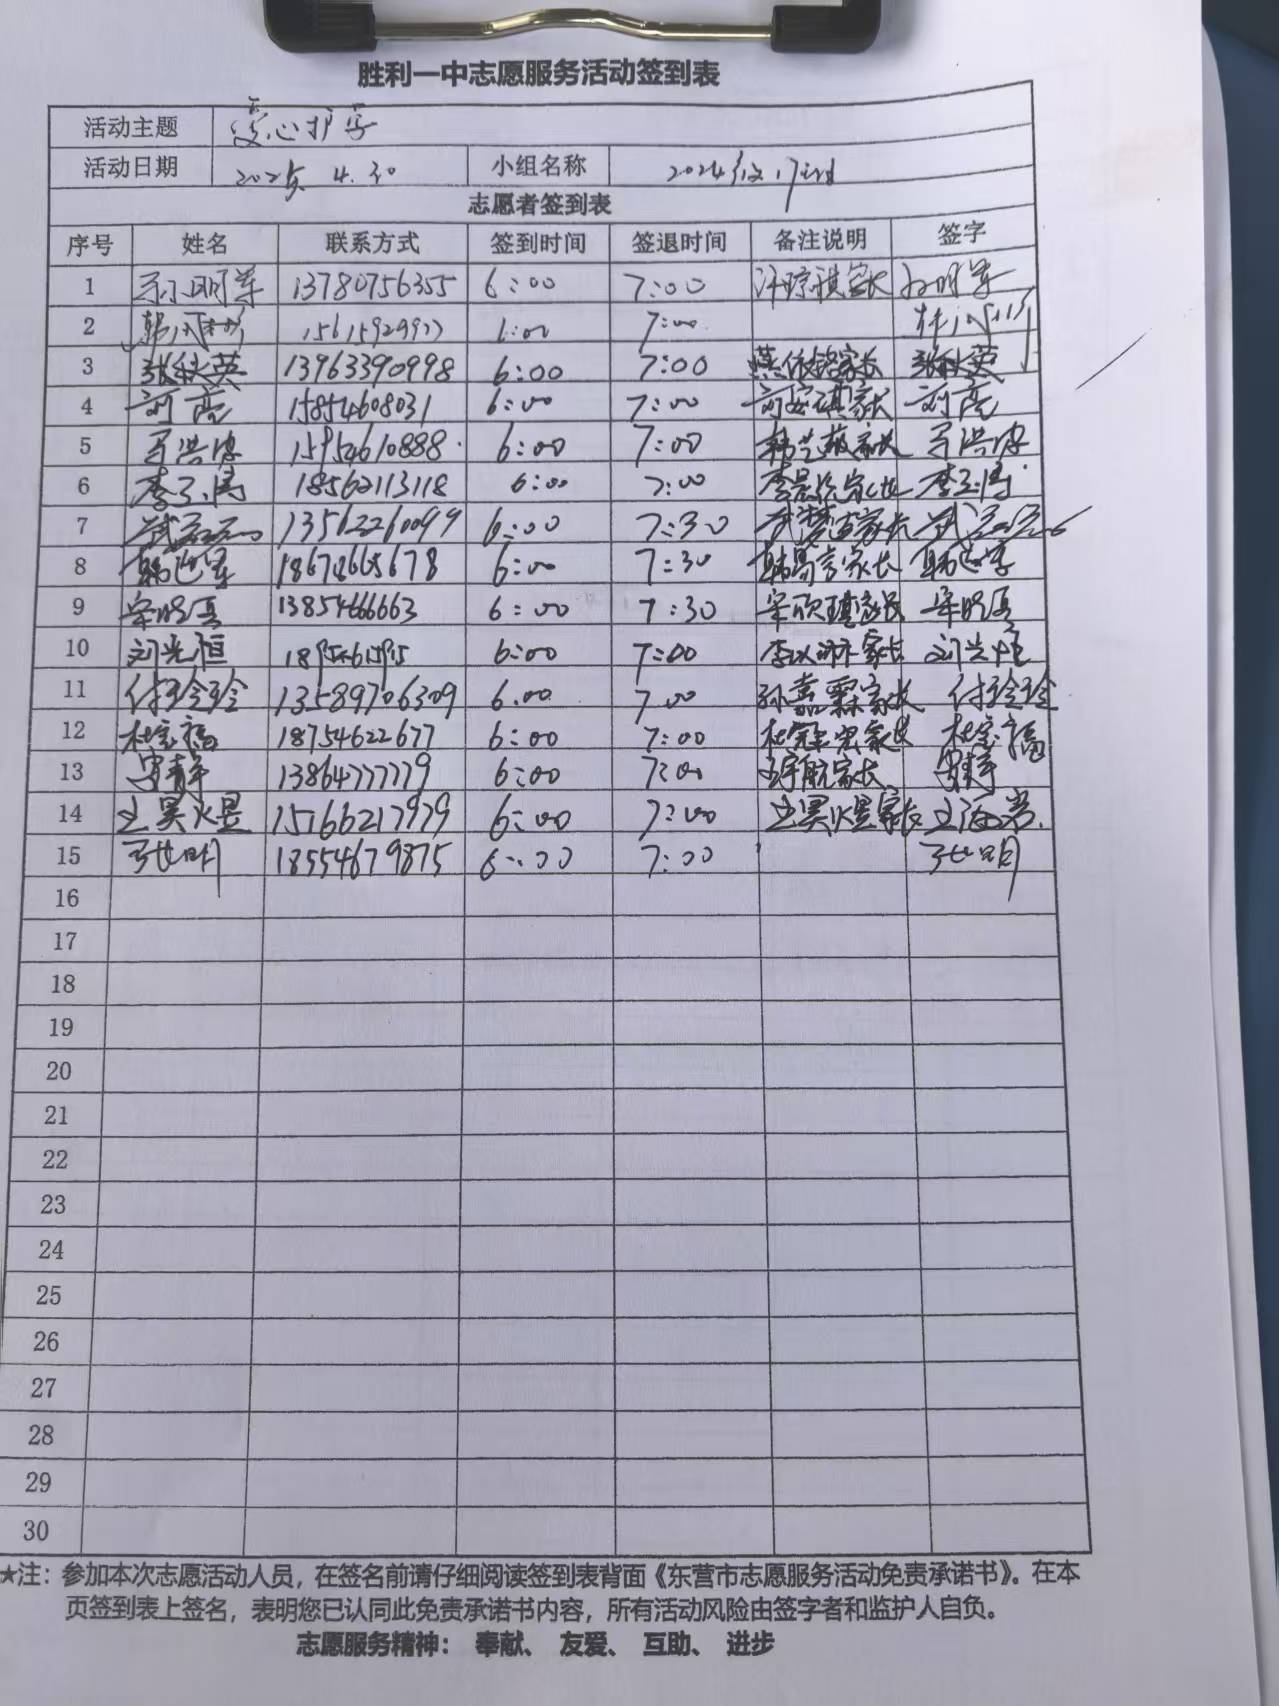 胜利一中志愿服务活动签到表
活动主题 爱心护学
活动日期 2025. 4. 30 小组名称 2024级17班
志愿者签到表
序号 姓名 联系方式 签到时间 签退时间 备注说明 签字
1 孙明军 13780756355 6:00 7:00 家长 孙明军
2 7:00
3 张秋英 13963390998 6:00 7:00 家长 张秋英
4 刘亮 15854608031 6:00 7:00 家长 刘亮
5 15954610888 6:00 7:00 家长
6 李玉涛 18562113118 6:00 7:00 李 李玉涛
7 武 13562260099 6:00 7:30 武 家长 武
8 韩 18678665678 6:00 7:30 韩 家长 韩
9 13854666663 6:00 7:30 家长
10 刘光恒 6:00 7:00 李 家长 刘光恒
11 付玲玲 13589706309 6:00 7:00 孙嘉霖家长 付玲玲
12 杜宝福 18754622677 6:00 7:00 杜 家长 杜宝福
13 安静 13864777779 6:00 7:00 王宇航家长 安静
14 王昊煜 15166217979 6:00 7:00 王昊煜家长 王海岩
15 张明 18554679875 6:00 7:00 张明
16
17
18
19
20
21
22
23
24
25
26
27
28
29
30
★注：参加本次志愿活动人员，在签名前请仔细阅读签到表背面《东营市志愿服务活动免责承诺书》。在本
页签到表上签名，表明您已认同此免责承诺书内容，所有活动风险由签字者和监护人自负。
志愿服务精神： 奉献、 友爱、 互助、 进步